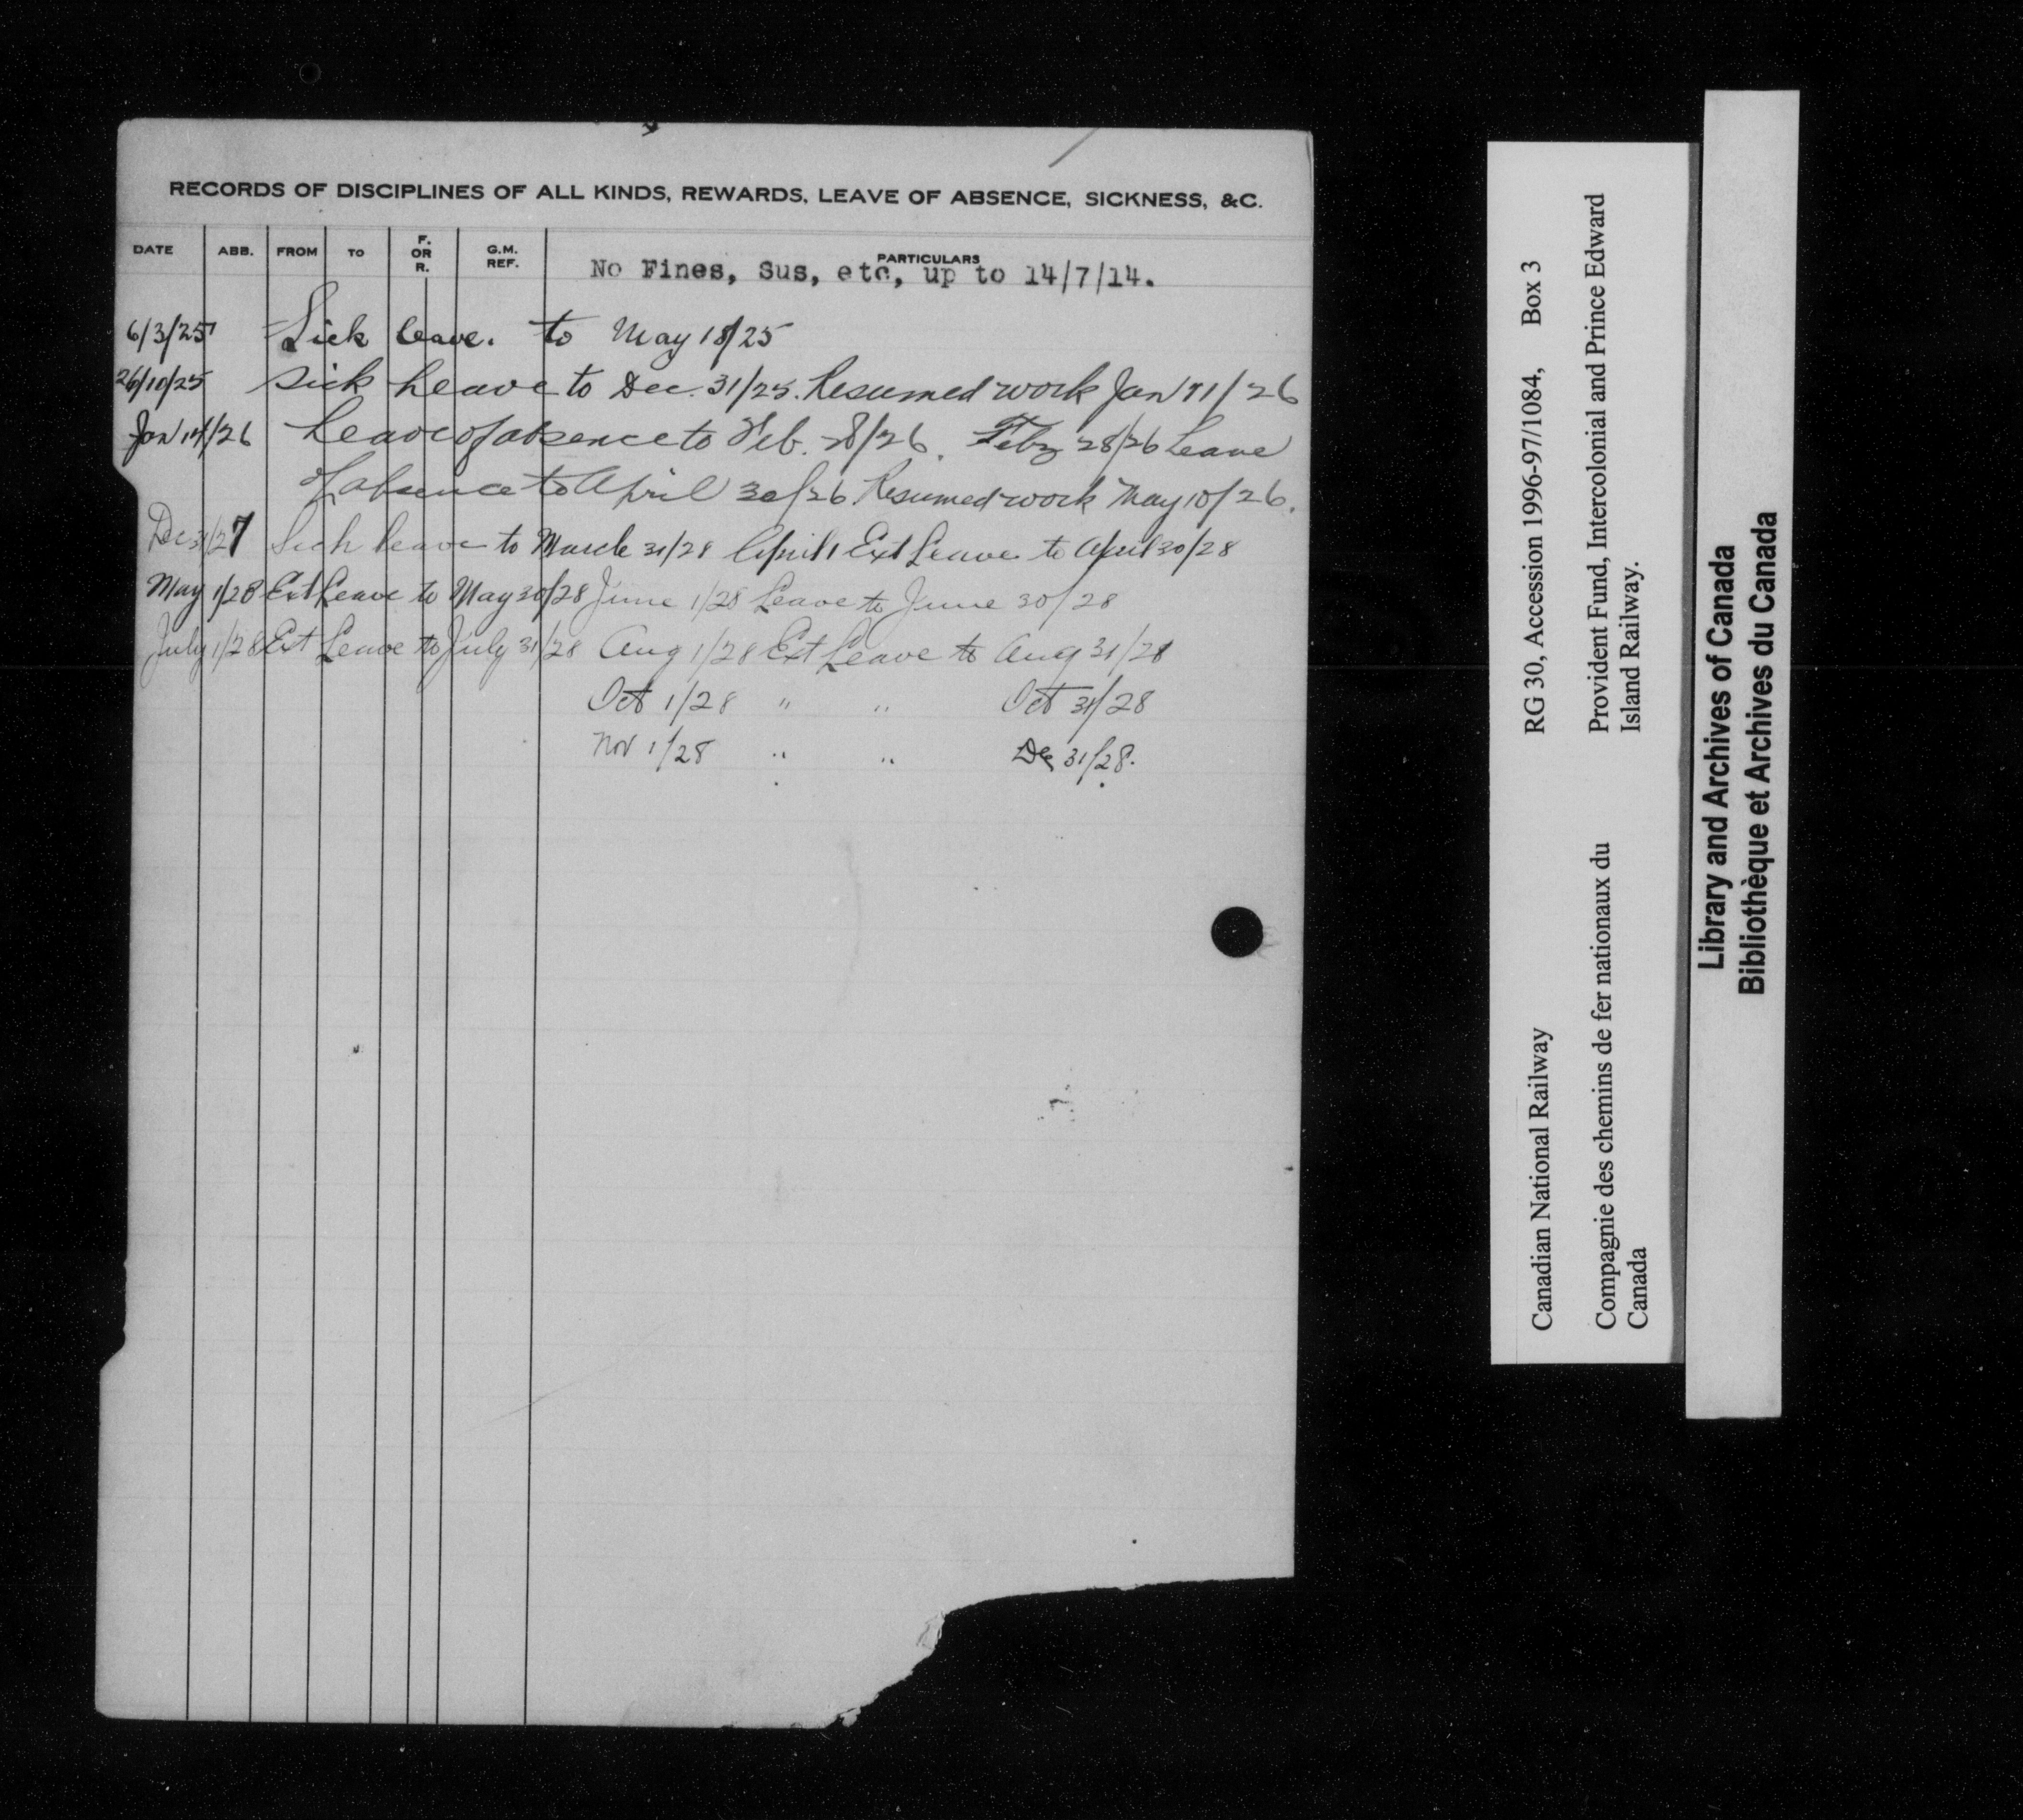 RECORDS OF DISCIPLINES OF ALL KINDS, REWARDS, LEAVE OF ABSENCE, SICKNESS, &C.
DATE ABB. FROM TO F. OR R. G.M. REF. PARTICULARS
No Fines, Sus, etc, up to 14/7/14.
6/3/25 Sick leave. to May 18/25
26/10/25 Sick Leave to Dec. 31/25. Resumed work Jan 11/26
Jan 14/26 Leave of absence to Feb. 28/26. Feby 28/26 Leave
of absence to April 30/26 Resumed work May 10/26.
Dec 31/27 Sick leave to March 31/28 April 1 Ext Leave to April 30/28
May 1/28 Ext Leave to May 30/28 June 1/28 Leave to June 30/28
July 1/28 Ext Leave to July 31/28 Aug 1/28 Ext Leave to Aug 31/28
Oct 1/28 " " Oct 31/28
Nov 1/28 " " Dec 31/28.
Canadian National Railway RG 30, Accession 1996-97/1084, Box 3
Compagnie des chemins de fer nationaux du Provident Fund, Intercolonial and Prince Edward
Canada Island Railway.
Library and Archives of Canada
Bibliothèque et Archives du Canada